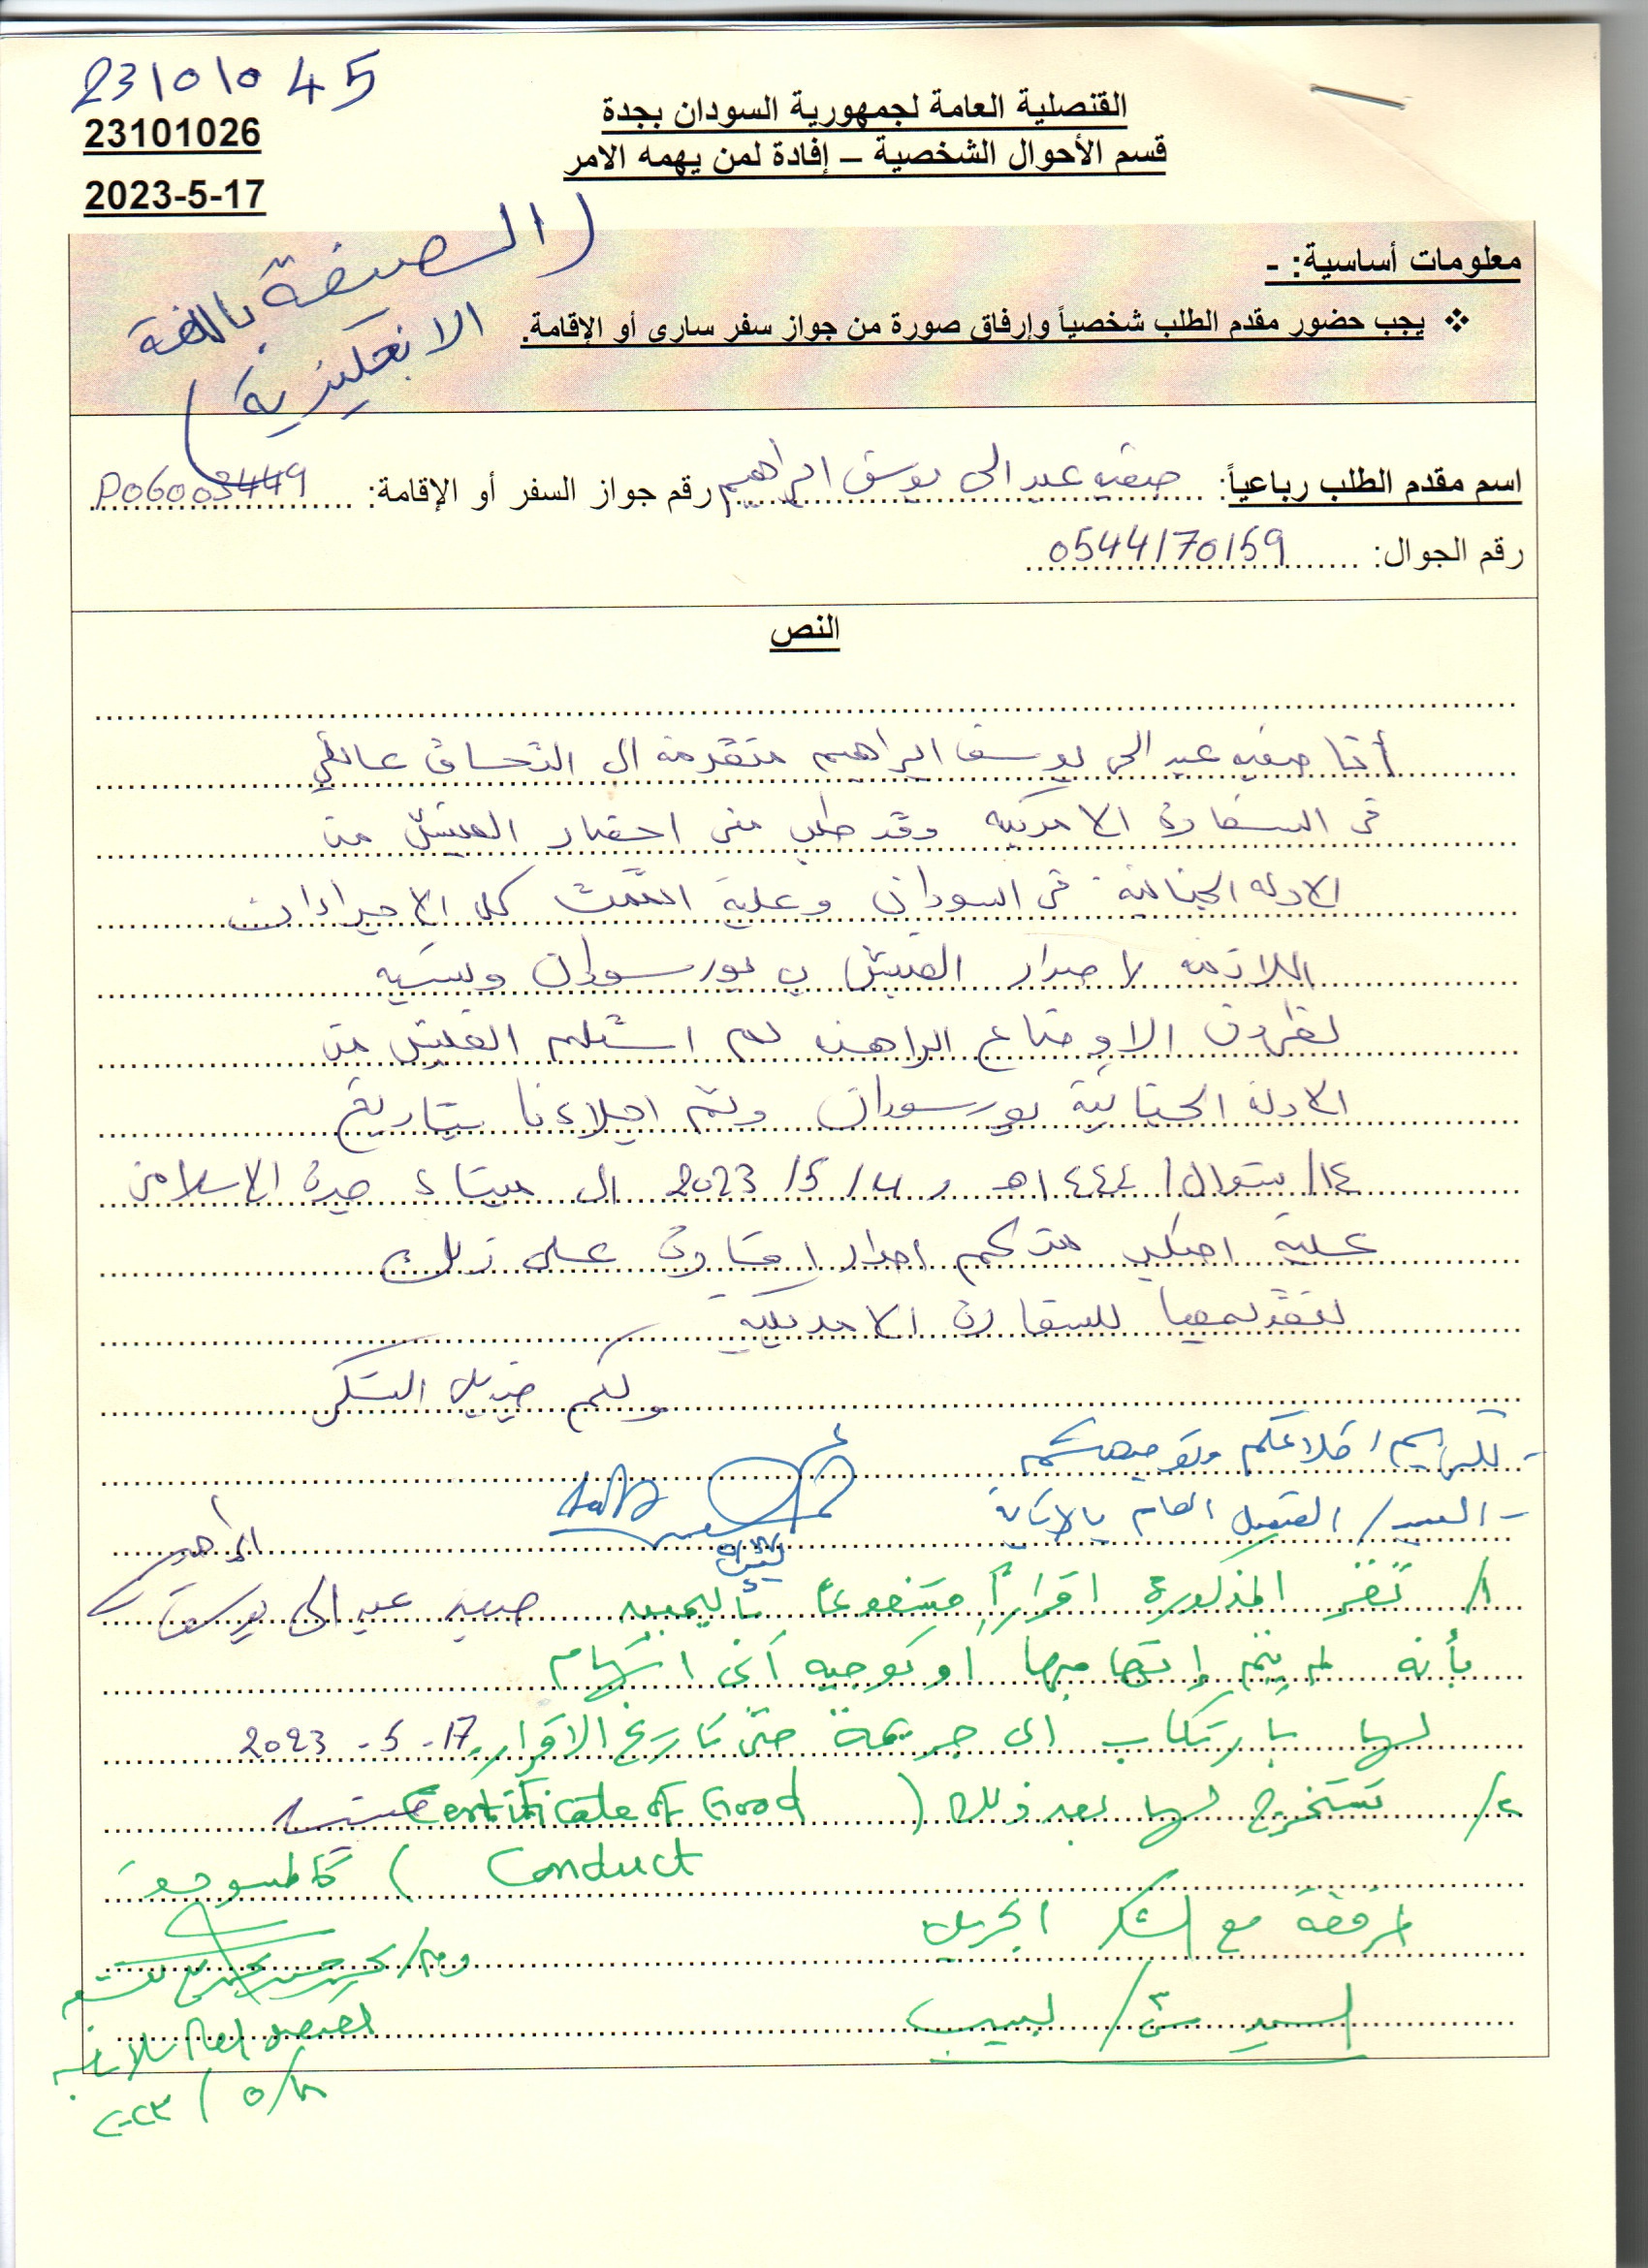 23101045
23101026
2023-5-17
القنصلية العامة لجمهورية السودان بجدة
قسم الأحوال الشخصية – إفادة لمن يهمه الامر
(الصيغة باللغة
الانجليزية)
معلومات أساسية: -
❖ يجب حضور مقدم الطلب شخصياً وإرفاق صورة من جواز سفر سارى أو الإقامة.
اسم مقدم الطلب رباعياً: صفيه عبد الحى يوسف ابراهيم رقم جواز السفر أو الإقامة: P06003449
رقم الجوال: 0544170159
النص
أنا صفيه عبد الحى يوسف ابراهيم متقدمة الى التحاق عائلي
فى السفارة الامريكيه وقد طلب منى احضار الفيش من
الادله الجنائية فى السودان وعليه اتممت كل الاجراءات
اللازمه لاصدار الفيش ب بورسودان ونسبه
لظروف الاوضاع الراهنه لم استلم الفيش من
الادلة الجنائية بورسودان وتم اجلاءنا بتاريخ
١٤/ شوال/ ١٤٤٤هـ و 4/ 5/ 2023 الى ميناء جدة الاسلامى
عليه اطلب منكم اصدار افادة على ذلك
لتقديمها للسفارة الامريكية
ولكم جزيل الشكر
- للتكرم اطلاعكم وتوجيهكم
- السيد/ القنصل العام بالانابة
١/ تقر المذكورة اقراراً مشفوعاً باليمين صفيه عبد الحى يوسف ابراهيم
بأنه لم يتم إتهامها او توجيه أى اتهام
لها بارتكاب اى جريمة حتى تاريخ الاقرار. 17-5-2023
٢/ تستخرج لها بعد ذلك (Certificate of Good صفيه
Conduct) كالمسودة
المرفقة مع الشكر الجزيل
القنصل العام بالانابة
السيد / لبيب
١٨/ ٥/ ٢٠٢٣